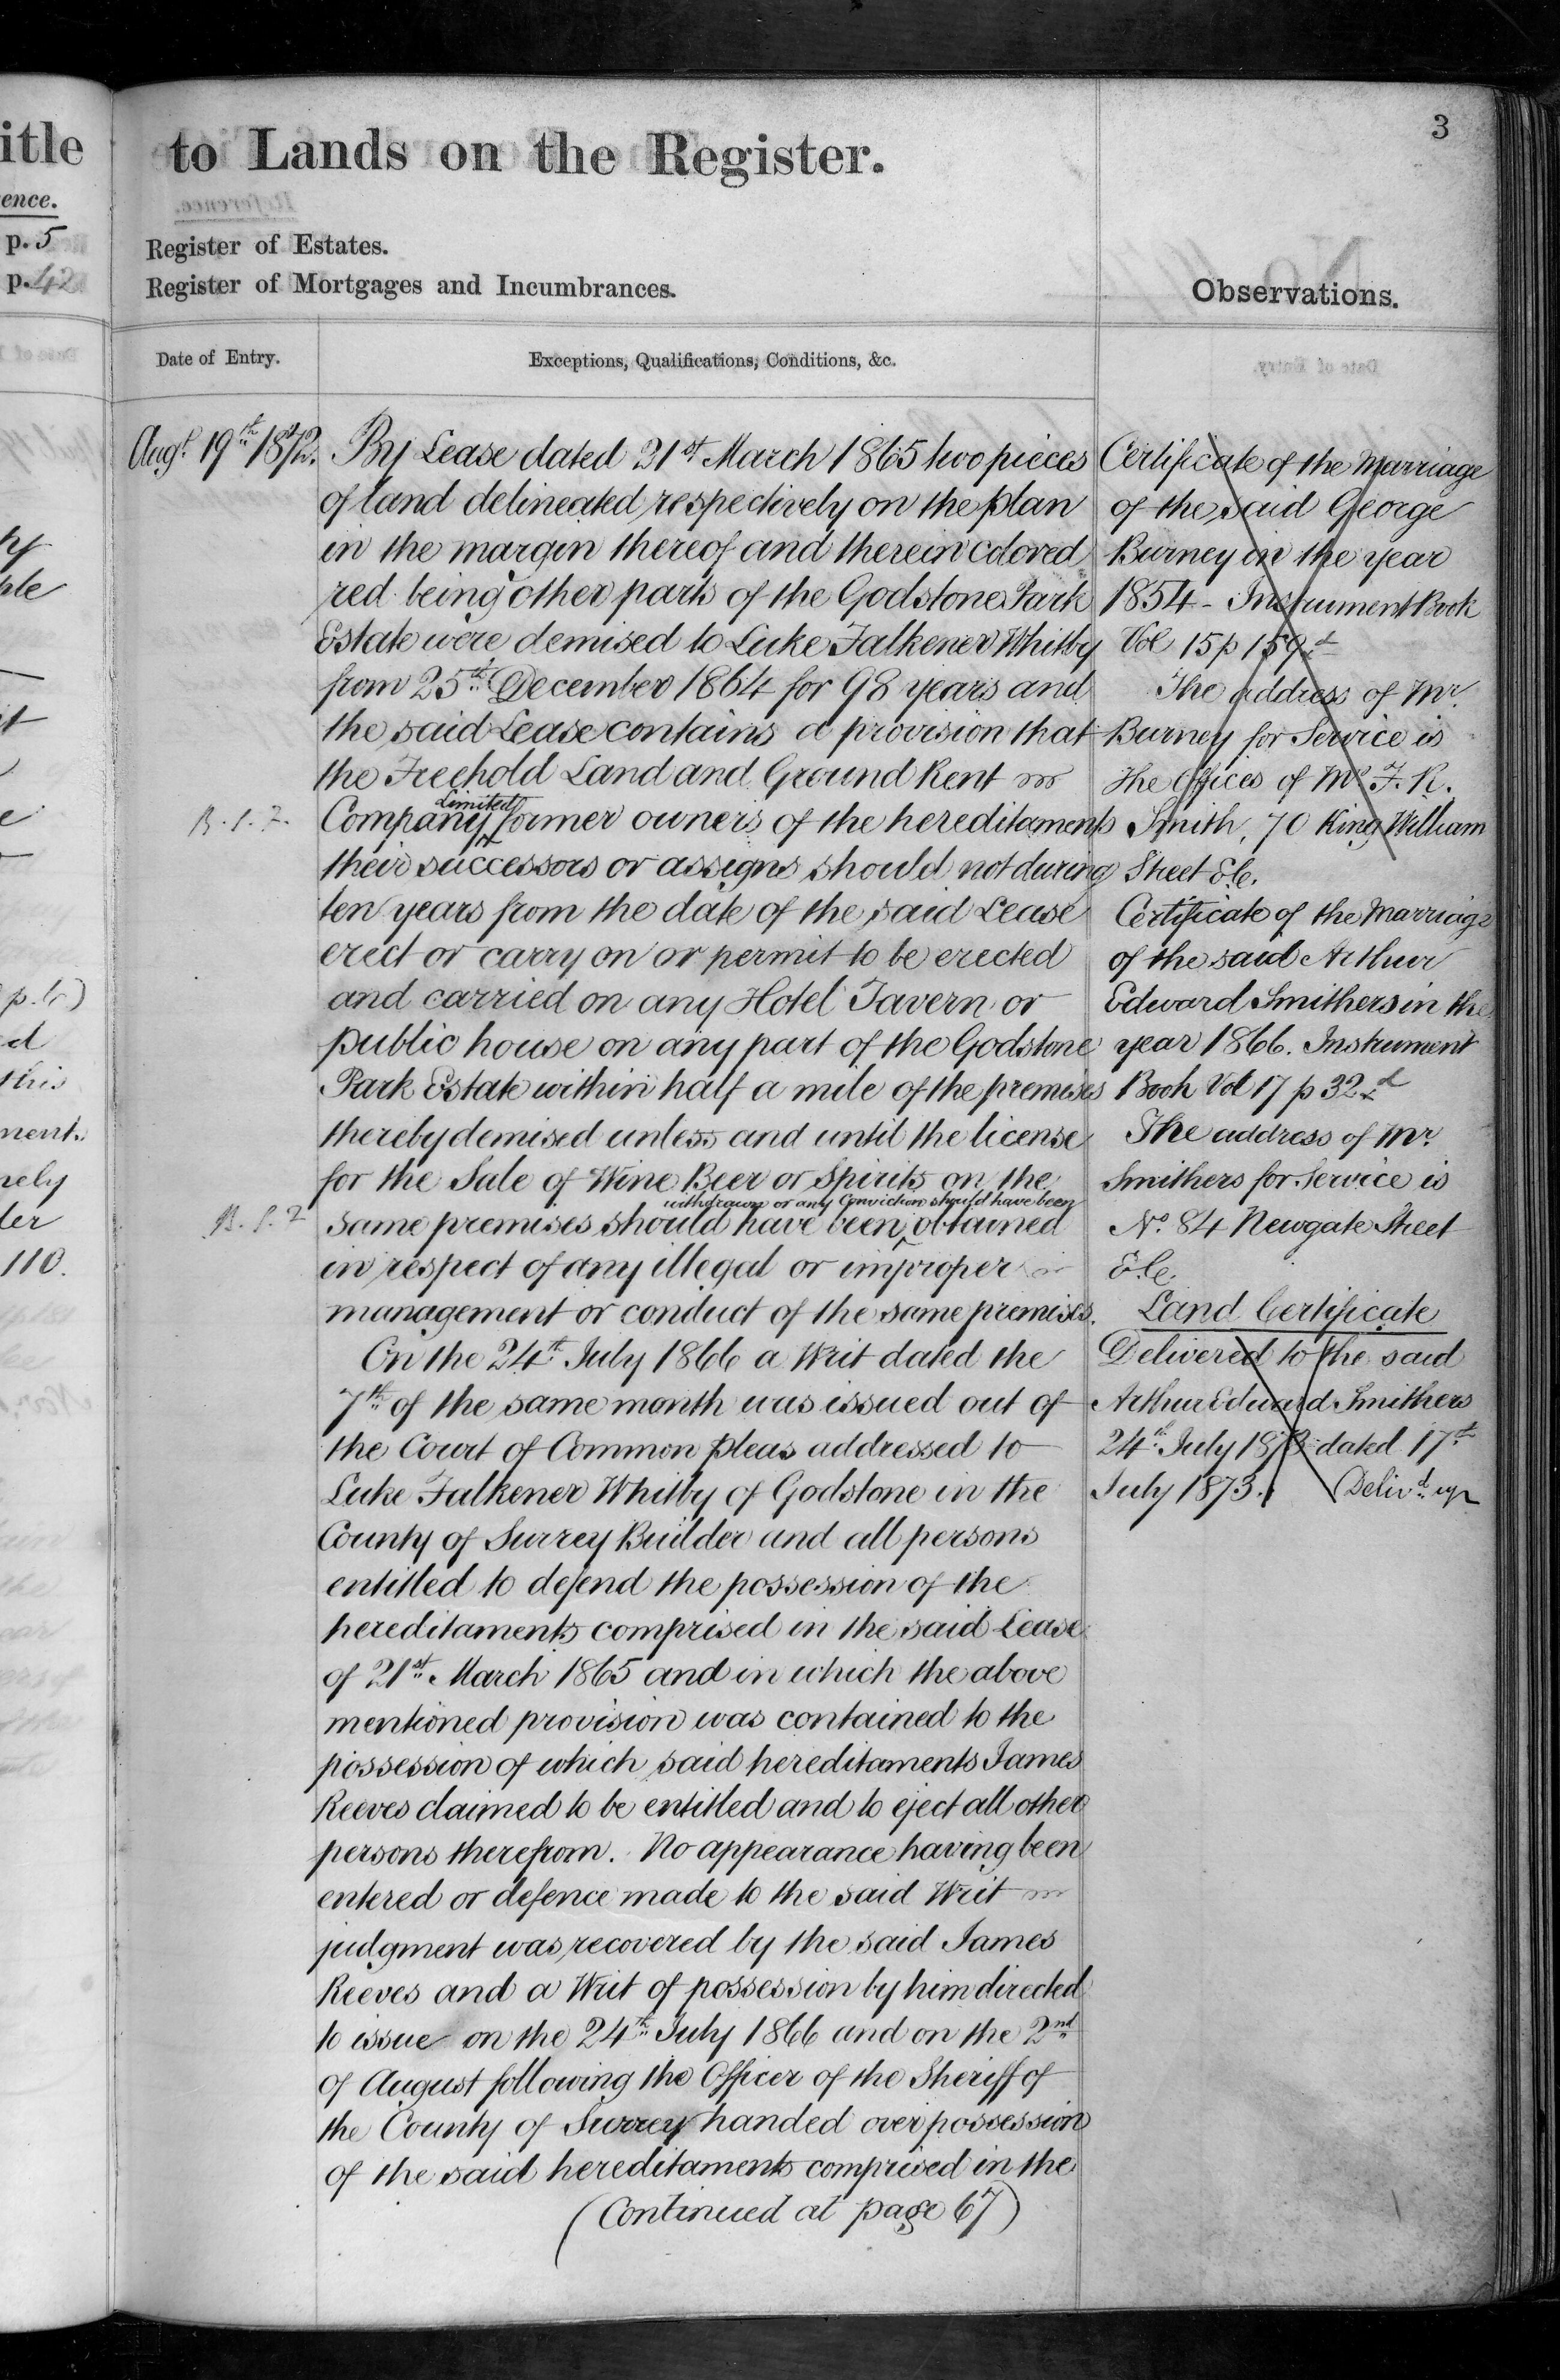 3
to Lands on the Register.
Register of Estates.
Register of Mortgages and Incumbrances.
Date of Entry.
Exceptions, Qualifications, Conditions, &c.
Augt. 19th 1872.
By Lease dated 21st March 1865 two pieces
of land delineated respectively on the plan
in the margin thereof and therein colored
red being other parts of the Godstone Park
Estate were demised to Luke Falkener Whitby
from 25th December 1864 for 98 years and
the said Lease contains a provision that
the Freehold Land and Ground Rent
Company Limited former owners of the hereditaments
their successors or assigns should not during
ten years from the date of the said Lease
erect or carry on or permit to be erected
and carried on any Hotel Tavern or
public house on any part of the Godstone
Park Estate within half a mile of the premises
thereby demised unless and until the license
for the Sale of Wine Beer or Spirits on the
same premises should have been withdrawn or any Conviction should have been obtained
in respect of any illegal or improper
management or conduct of the same premises.
On the 24th July 1866 a Writ dated the
7th of the same month was issued out of
the Court of Common pleas addressed to
Luke Falkener Whitby of Godstone in the
County of Surrey Builder and all persons
entitled to defend the possession of the
hereditaments comprised in the said Lease
of 21st March 1865 and in which the above
mentioned provision was contained to the
possession of which said hereditaments James
Reeves claimed to be entitled and to eject all other
persons therefrom. No appearance having been
entered or defence made to the said Writ
judgment was recovered by the said James
Reeves and a Writ of possession by him directed
to issue on the 24th July 1866 and on the 2nd
of August following the Officer of the Sheriff of
the County of Surrey handed over possession
of the said hereditaments comprised in the
(Continued at page 67)
Observations.
Certificate of the Marriage
of the said George
Burney in the year
1854 - Instrument Book
Vol 15 p 159
The address of Mr.
Burney for Service is
the Offices of Mr. F. K.
Smith, 70 King William
Street E.C.
Certificate of the Marriage
of the said Arthur
Edward Smithers in the
year 1866. Instrument
Book Vol 17 p 32
The address of Mr.
Smithers for Service is
No. 84 Newgate Street
E.C.
Land Certificate
Delivered to the said
Arthur Edward Smithers
24th July 1873 dated 17th
July 1873. Delivd. up
itle
ence.
p. 5
p. 42